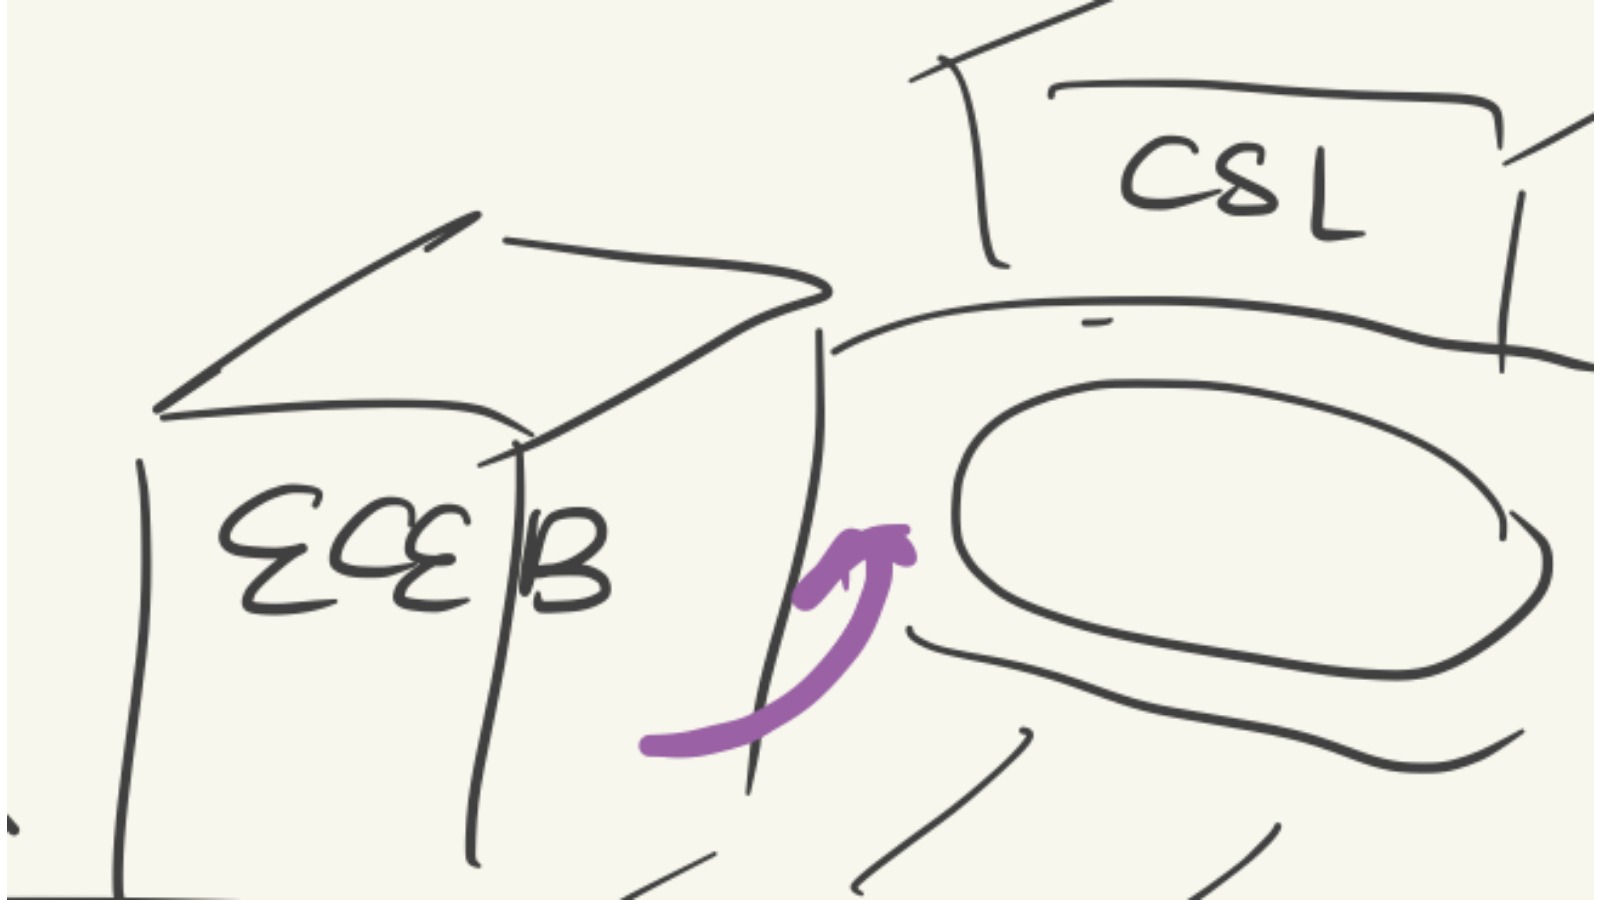 CSL
ECEB